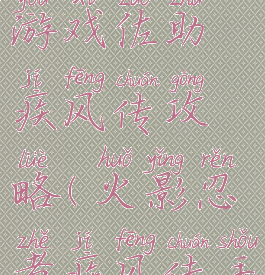 yóu xì zuǒ zhù
游戏佐助
jí fēng chuán gōng
疾风传攻
lüè huǒ yǐng rěn
略(火影忍
zhě jí fēng chuán shǒu
者疾风传手